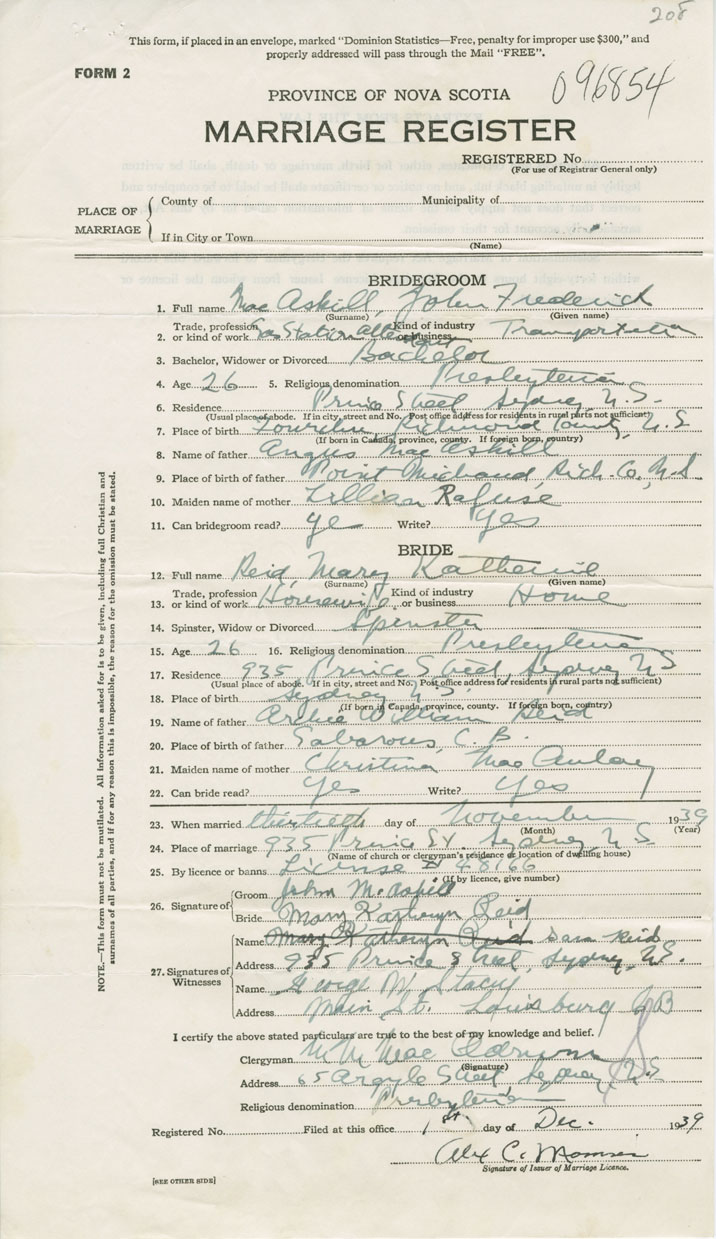 208
This form, if placed in an envelope, marked "Dominion Statistics—Free, penalty for improper use $300," and
properly addressed will pass through the Mail "FREE".
FORM 2
096854
PROVINCE OF NOVA SCOTIA
MARRIAGE REGISTER
REGISTERED No.
(For use of Registrar General only)
PLACE OF MARRIAGE
County of Municipality of
If in City or Town
(Name)
BRIDEGROOM
1. Full name MacAskill, John Frederick
(Surname) (Given name)
2. Trade, profession or kind of work Gas Station Attendant Kind of industry or business Transportation
3. Bachelor, Widower or Divorced Bachelor
4. Age 26 5. Religious denomination Presbyterian
6. Residence Prince Street Sydney N.S.
(Usual place of abode. If in city, street and No. Post office address for residents in rural parts not sufficient)
7. Place of birth Lourdes, Richmond County, N.S
(If born in Canada, province, county. If foreign born, country)
8. Name of father Angus MacAskill
9. Place of birth of father Point Michaud, Rich. Co., N.S.
10. Maiden name of mother Lillian Rafuse
11. Can bridegroom read? Yes Write? Yes
BRIDE
12. Full name Reid, Mary Katherine
(Surname) (Given name)
13. Trade, profession or kind of work Housewife Kind of industry or business Home
14. Spinster, Widow or Divorced Spinster
15. Age 26 16. Religious denomination Presbyterian
17. Residence 935 Prince Street, Sydney NS
(Usual place of abode. If in city, street and No. Post office address for residents in rural parts not sufficient)
18. Place of birth Sydney N.S.
(If born in Canada, province, county. If foreign born, country)
19. Name of father Archie William Reid
20. Place of birth of father Gabarous, C.B.
21. Maiden name of mother Christina MacAulay
22. Can bride read? Yes Write? Yes
23. When married thirtieth day of November 1939
(Month) (Year)
24. Place of marriage 935 Prince St. Sydney, N S
(Name of church or clergyman's residence or location of dwelling house)
25. By licence or banns License # 48166
(If by licence, give number)
26. Signature of Groom John McAskill
Bride Mary Katheryn Reid
27. Signatures of Witnesses
Name Mary Katheryn Reid Sara Reid
Address 935 Prince Street, Sydney, N.S.
Name George W. Stacey
Address Main St. Louisburg CB
I certify the above stated particulars are true to the best of my knowledge and belief.
Clergyman
(Signature)
Address 65 Argyle Street Sydney, N.S.
Religious denomination Presbyterian
Registered No. Filed at this office 1st day of Dec. 1939
Alex C.
Signature of Issuer of Marriage Licence.
[SEE OTHER SIDE]
NOTE.—This form must not be mutilated. All information asked for is to be given, including full Christian and
surnames of all parties, and if for any reason this is impossible, the reason for the omission must be stated.